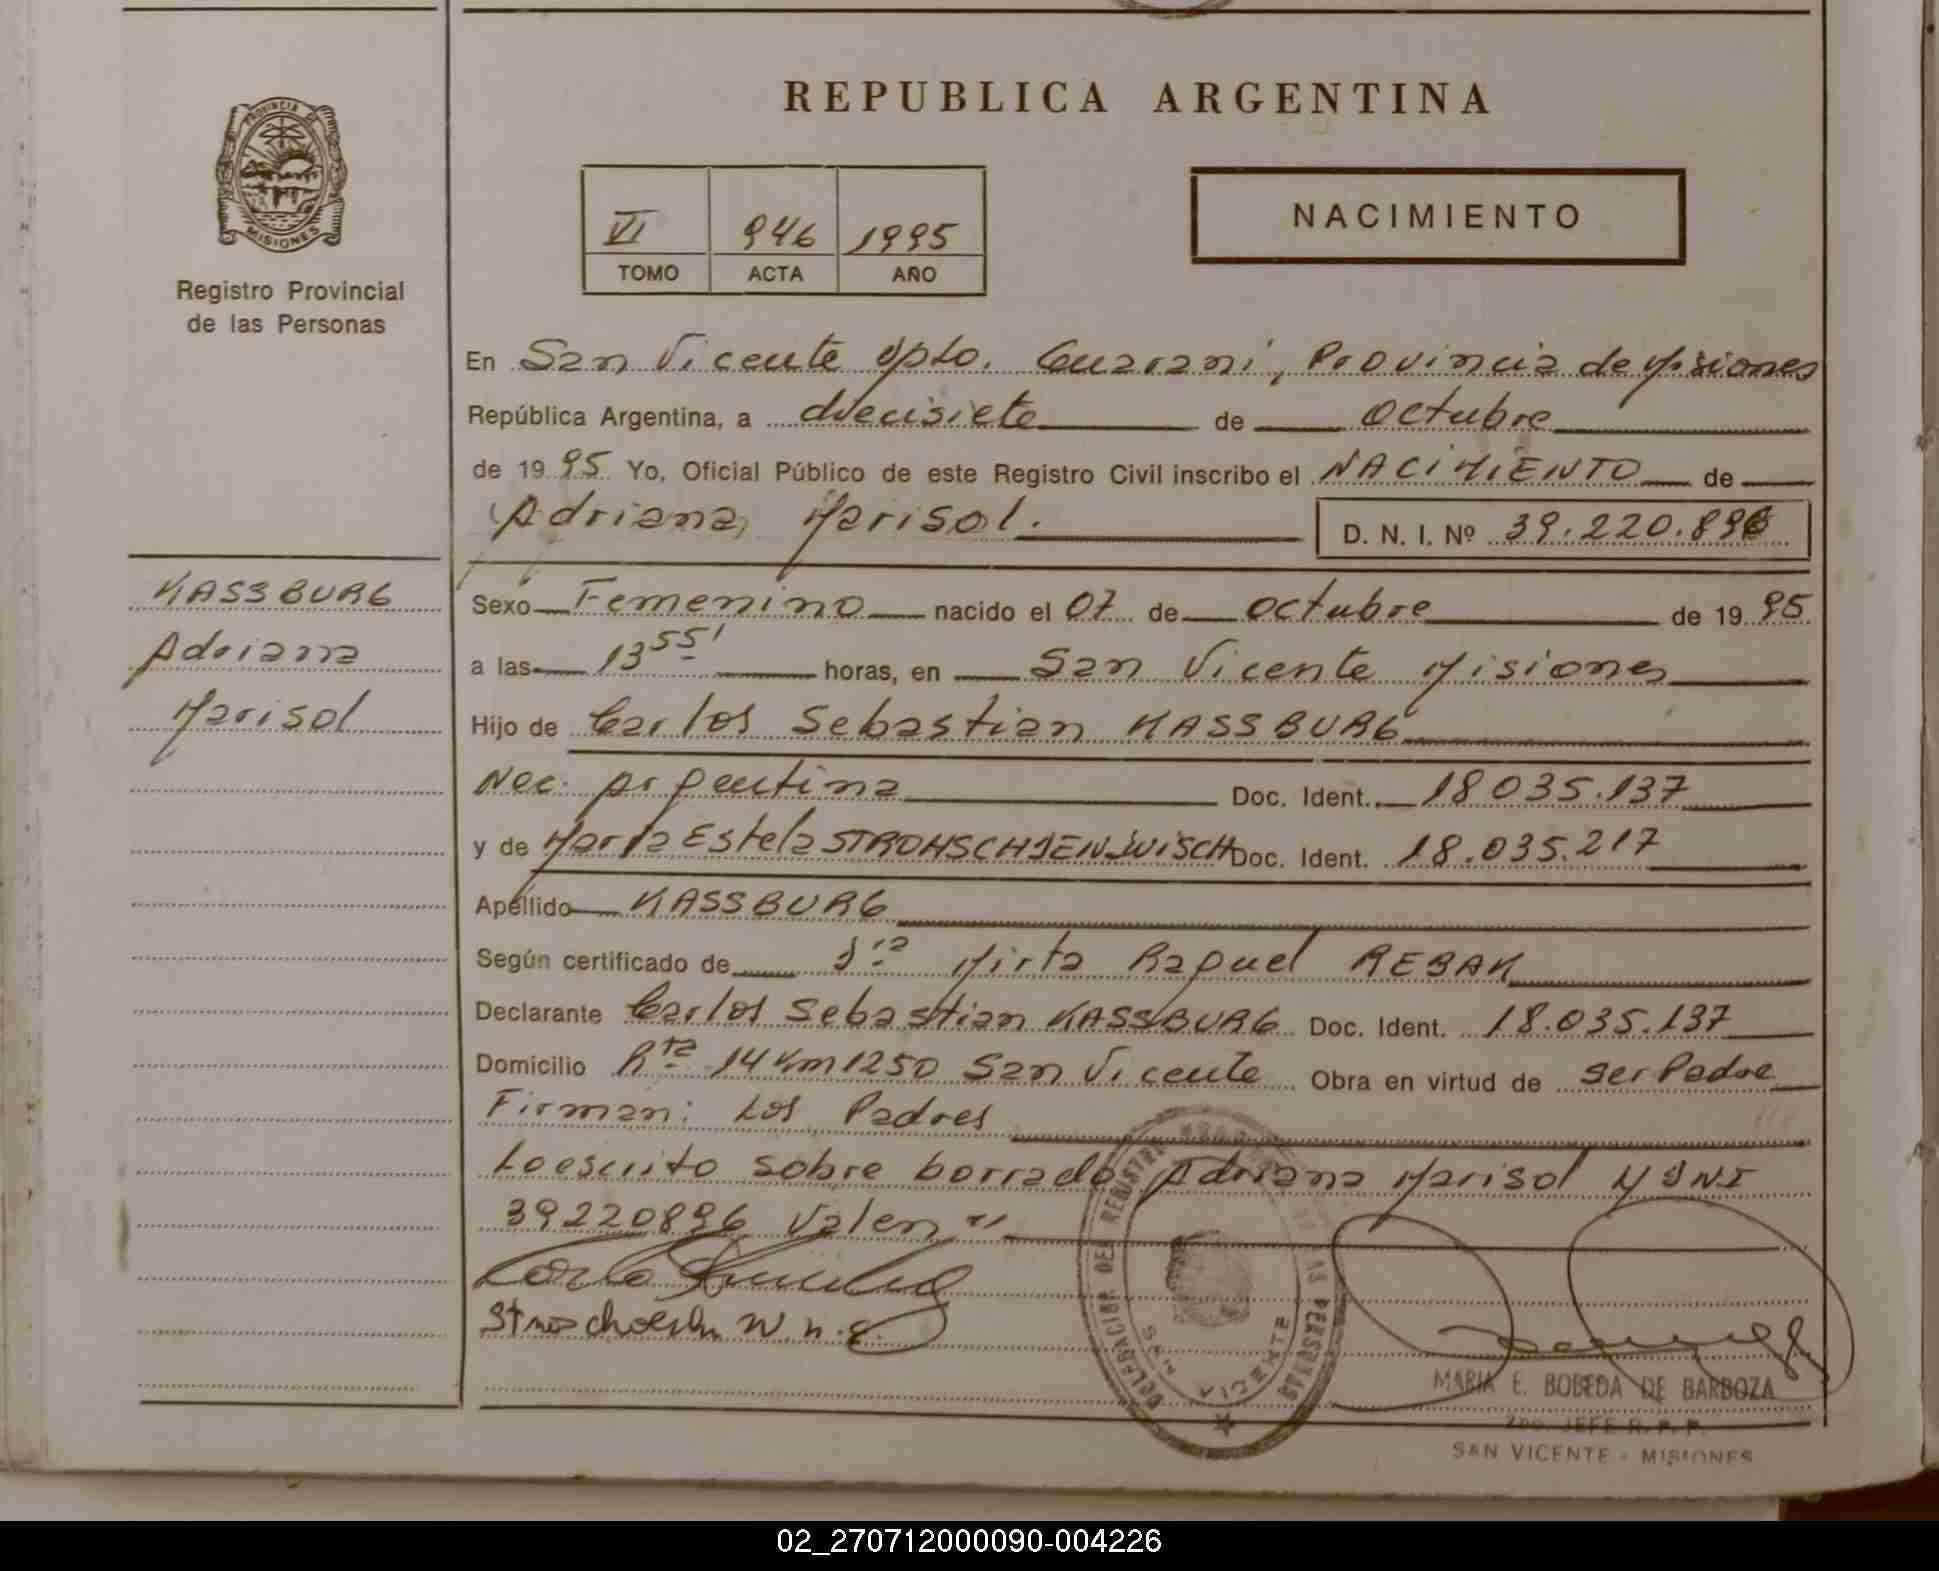 REPUBLICA ARGENTINA
PROVINCIA DE
MISIONES
Registro Provincial
de las Personas
VI 946 1995
TOMO ACTA AÑO
NACIMIENTO
En San Vicente Dpto. Guaraní, Provincia de Misiones
República Argentina, a diecisiete de Octubre
de 1995 Yo, Oficial Público de este Registro Civil inscribo el NACIMIENTO de
Adriana Marisol. D. N. I. Nº 39.220.896
KASSBURG
Adriana
Marisol
Sexo Femenino nacido el 07 de octubre de 1995
a las 13 55' horas, en San Vicente Misiones
Hijo de Carlos Sebastian KASSBURG
Nac. Argentina Doc. Ident. 18.035.137
y de Maria Estela STROHSCHJENWISCH Doc. Ident. 18.035.217
Apellido KASSBURG
Según certificado de Dra Mirta Raquel REBAK
Declarante Carlos Sebastian KASSBURG Doc. Ident. 18.035.137
Domicilio Rta 14 Km 1250 San Vicente Obra en virtud de ser Padre
Firman: Los Padres
Lo escrito sobre borrado Adriana Marisol y DNI
39220896 Valen
DELEGACION DEL REGISTRO PROVINCIAL DE LAS PERSONAS
SAN VICENTE
MARIA E. BOBEDA DE BARBOZA
2do. JEFE R. P. P.
SAN VICENTE - MISIONES
02_270712000090-004226